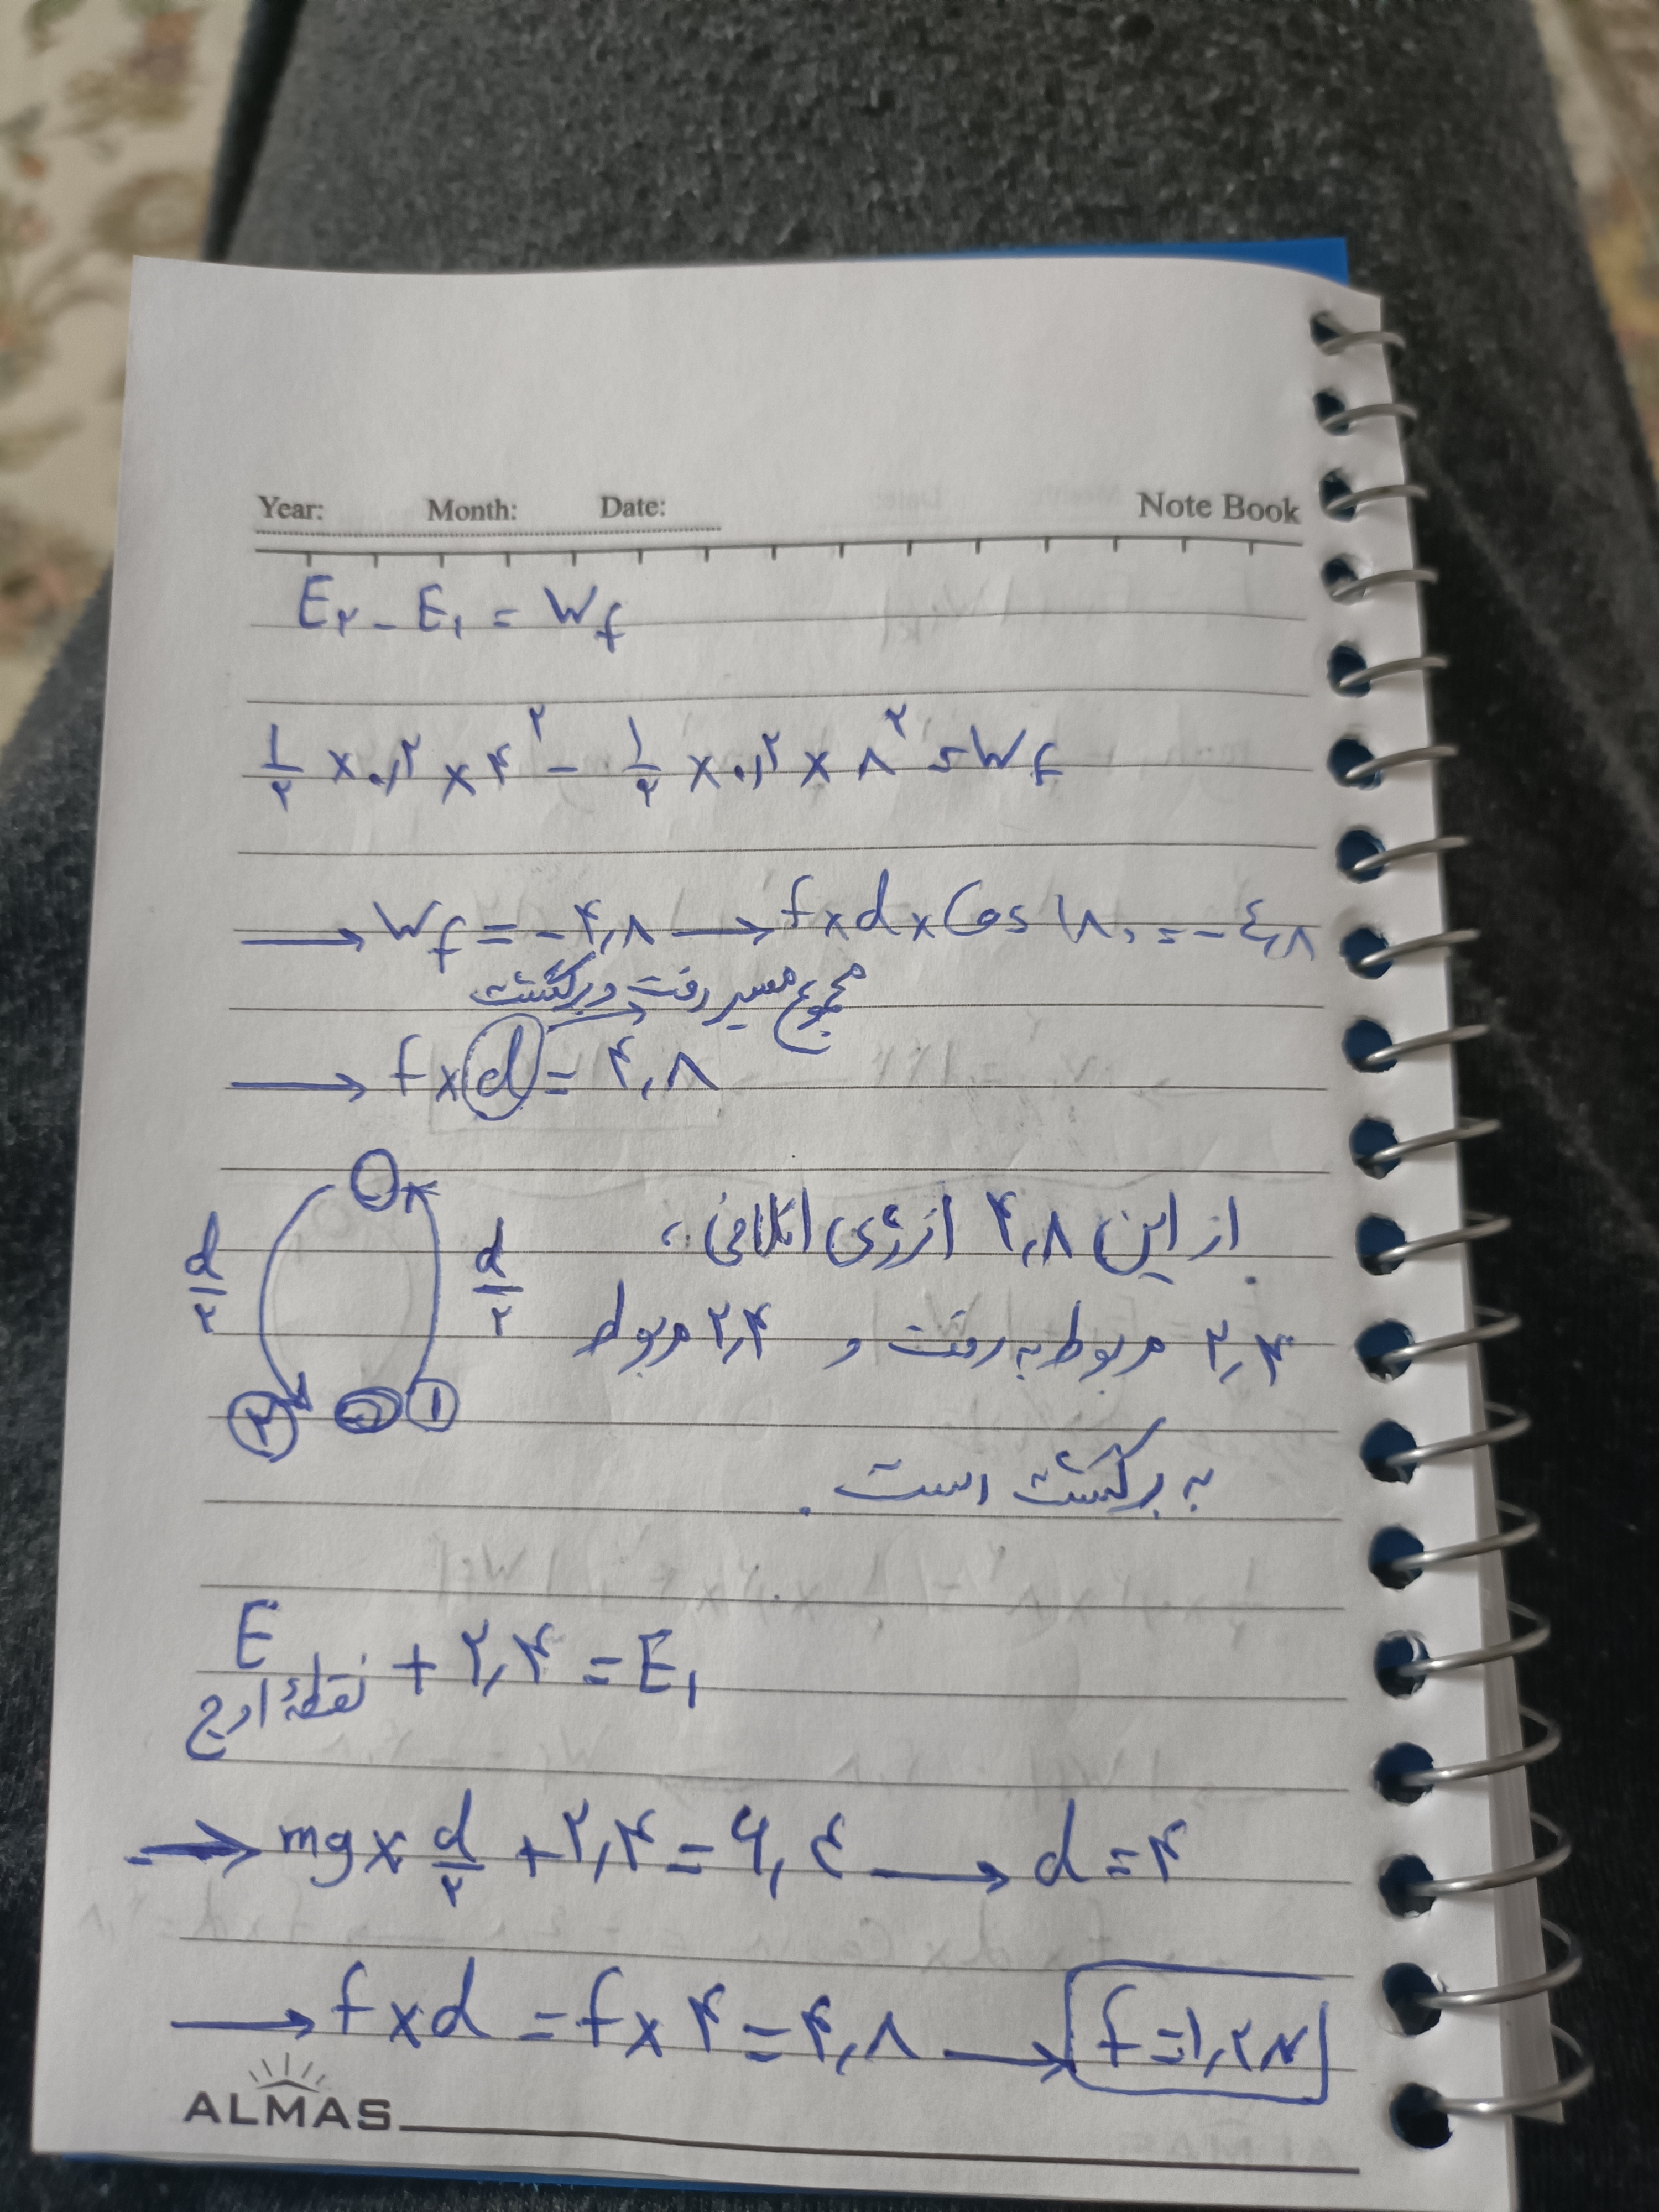 Year: Month: Date: Note Book
E۲ - E۱ = Wf
۱/۲ × ۰٫۲ × ۴² - ۱/۲ × ۰٫۲ × ۸² = Wf
→ Wf = -۴٫۸ → f × d × Cos ۱۸۰ = -٤٫۸
مجموع مسیر رفت و برگشت
→ f × d = ۴٫۸
d/۲ d/۲ از این ۴٫۸ انرژی اتلافی،
۲٫۴ مربوط به رفت و ۲٫۴ مربوط
۲ ۱
به برگشت است.
E نقطهٔ اوج + ۲٫۴ = E۱
→ mg × d/۲ + ۲٫۴ = ۶٫٤ → d = ۴
→ f × d = f × ۴ = ۴٫۸ → f = ۱٫۲ N
ALMAS